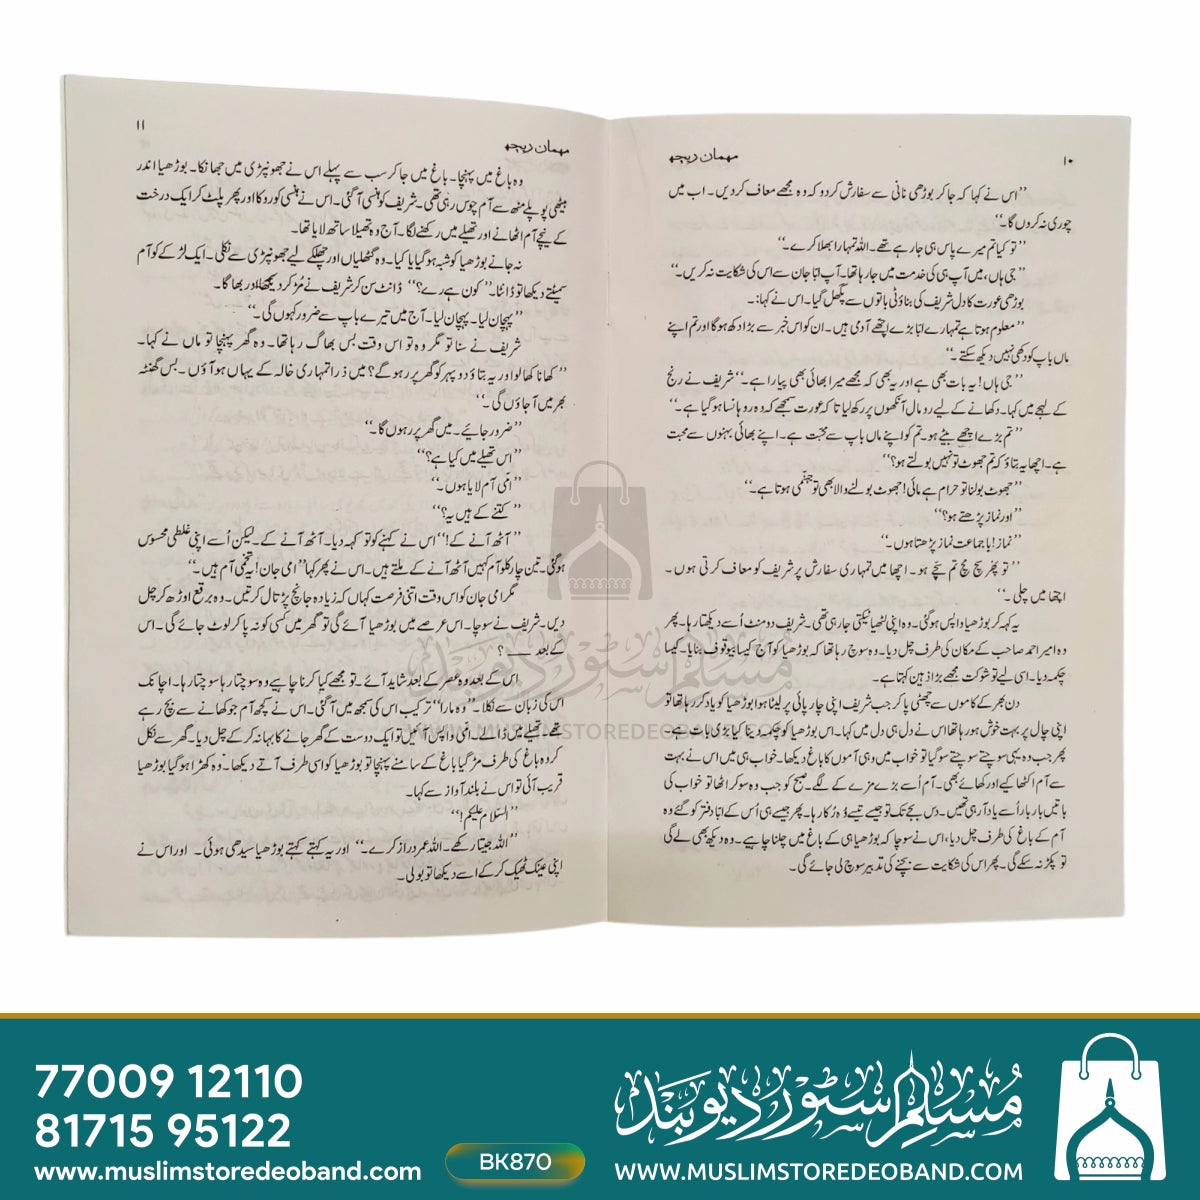 ۱۰
مہمان ریچھ
’’اس نے کہا کہ جا کر بوڑھی نانی سے سفارش کردو کہ وہ مجھے معاف کردیں۔ اب میں
چوری نہ کروں گا۔‘‘
’’تو کیا تم میرے پاس ہی جارہے تھے۔ اللہ تمہارا بھلا کرے۔‘‘
’’جی ہاں، میں آپ ہی کی خدمت میں جارہا تھا۔ آپ ابا جان سے اس کی شکایت نہ کریں۔‘‘
بوڑھی عورت کا دل شریف کی بناوٹی باتوں سے پگھل گیا۔ اس نے کہا:۔
’’معلوم ہوتا ہے تمہارے ابّا بڑے اچھے آدمی ہیں۔ ان کو اس خبر سے بڑا دکھ ہوگا اور تم اپنے
ماں باپ کو دکھی نہیں دیکھ سکتے۔‘‘
’’جی ہاں! یہ بات بھی ہے اور یہ بھی کہ مجھے میرا بھائی بھی پیارا ہے۔‘‘ شریف نے رنج
کے لہجے میں کہا۔ دکھانے کے لیے رومال آنکھوں پر رکھ لیا تاکہ عورت سمجھے کہ وہ روہانسا ہوگیا ہے۔‘‘
’’تم بڑے اچھے بیٹے ہو۔ تم کو اپنے ماں باپ سے محبّت ہے۔ اپنے بھائی بہنوں سے محبت
ہے۔ اچھا یہ بتاؤ کہ تم جھوٹ تو نہیں بولتے ہو؟‘‘
’’جھوٹ بولنا تو حرام ہے مائی! جھوٹ بولنے والا بھی تو جہنّمی ہوتا ہے۔‘‘
’’اور نماز پڑھتے ہو؟‘‘
’’نماز! باجماعت نماز پڑھتا ہوں۔‘‘
’’تو پھر سچ مچ تم سچّے ہو۔ اچھا میں تمہاری سفارش پر شریف کو معاف کرتی ہوں۔
اچھا میں چلی۔‘‘
یہ کہہ کر بوڑھیا واپس ہوگئی۔ وہ اپنی لٹھیا ٹیکتی جارہی تھی۔ شریف دو منٹ اُسے دیکھتا رہا۔ پھر
وہ امیر احمد صاحب کے مکان کی طرف چل دیا۔ وہ سوچ رہا تھا کہ بوڑھیا کو آج کیسا بیوقوف بنایا۔ کیسا
چکمہ دیا۔ اسی لیے تو شوکت مجھے بڑا ذہین کہتا ہے۔
دن بھر کے کاموں سے چھٹی پا کر جب شریف اپنی چارپائی پر لیٹا ہوا بوڑھیا کو یاد کر رہا تھا تو
اپنی چال پر بہت خوش ہو رہا تھا اس نے دل ہی دل میں کہا۔ اس بوڑھیا کو چکمہ دینا کیا بڑی بات ہے۔
پھر جب وہ یہی سوچتے سوچتے سوگیا تو خواب میں وہی آموں کا باغ دیکھا۔ خواب ہی میں اس نے بہت
سے آم اکٹھا کیے اور کھائے بھی۔ آم اُسے بڑے مزے کے لگے۔ صبح کو جب وہ سو کر اٹھا تو خواب کی
باتیں بار بار اُسے یاد آرہی تھیں۔ دس بجے تک تو جیسے تیسے وہ رُکا رہا۔ پھر جیسے ہی اُس کے ابّا دفتر کو گئے وہ
آم کے باغ کی طرف چل دیا، اس نے سوچا کہ بوڑھیا ہی کے باغ میں چلنا چاہیے۔ وہ دیکھ بھی لے گی
تو پکڑ نہ سکے گی۔ پھر اس کی شکایت سے بچنے کی تدبیر سوچ لی جائے گی۔
۱۱
مہمان ریچھ
وہ باغ میں پہنچا۔ باغ میں جا کر سب سے پہلے اس نے جھونپڑی میں جھانکا۔ بوڑھیا اندر
بیٹھی پوپلے منھ سے آم چوس رہی تھی۔ شریف کو ہنسی آگئی۔ اس نے ہنسی کو روکا اور پھر پلٹ کر ایک درخت
کے نیچے آم اٹھانے اور تھیلے میں رکھنے لگا۔ آج وہ تھیلا ساتھ لایا تھا۔
نہ جانے بوڑھیا کو شبہ ہوگیا یا کیا۔ وہ گٹھلیاں اور چھلکے لیے جھونپڑی سے نکلی۔ ایک لڑکے کو آم
سمیٹتے دیکھا تو ڈانٹا۔ ’’کون ہے رے؟‘‘ ڈانٹ سن کر شریف نے مُڑ کر دیکھا اور بھاگا۔
’’پہچان لیا۔ پہچان لیا۔ آج میں تیرے باپ سے ضرور کہوں گی۔‘‘
شریف نے سنا تو مگر وہ تو اس وقت بس بھاگ رہا تھا۔ وہ گھر پہنچا تو ماں نے کہا۔
’’کھانا کھالو اور یہ بتاؤ دوپہر کو گھر پر رہو گے؟ میں ذرا تمہاری خالہ کے یہاں ہو آؤں۔ بس گھنٹہ
بھر میں آجاؤں گی۔‘‘
’’ضرور جائیے۔ میں گھر پر رہوں گا۔‘‘
’’اس تھیلے میں کیا ہے؟‘‘
’’امّی آم لایا ہوں۔‘‘
’’کتنے کے ہیں یہ؟‘‘
’’آٹھ آنے کے!‘‘ اس نے کہنے کو تو کہہ دیا۔ آٹھ آنے کے۔ لیکن اُسے اپنی غلطی محسوس
ہوگئی۔ تین چار کلو آم کہیں آٹھ آنے کے ملتے ہیں۔ اس نے پھر کہا ’’امی جان! یہ تخمی آم ہیں۔‘‘
مگر امی جان کو اس وقت اتنی فرصت کہاں کہ زیادہ جانچ پڑتال کرتیں۔ وہ برقع اوڑھ کر چل
دیں۔ شریف نے سوچا۔ اس عرصے میں بوڑھیا آئے گی تو گھر میں کسی کو نہ پا کر لوٹ جائے گی۔ اس
کے بعد ؟
اس کے بعد وہ عصر کے بعد شاید آئے۔ تو مجھے کیا کرنا چاہیے وہ سوچتا رہا سوچتا رہا۔ اچانک
اس کی زبان سے نکلا۔ ’’وہ مارا‘‘ ترکیب اس کی سمجھ میں آگئی۔ اس نے کچھ آم جو کھانے سے بچ رہے
تھے۔ تھیلے میں ڈالے۔ امّی واپس آئیں تو ایک دوست کے گھر جانے کا بہانہ کر کے چل دیا۔ گھر سے نکل
کر وہ باغ کی طرف مڑ گیا باغ کے سامنے پہنچا تو بوڑھیا کو اسی طرف آتے دیکھا۔ وہ کھڑا ہوگیا بوڑھیا
قریب آئی تو اس نے بلند آواز سے کہا۔
’’السّلام علیکم!‘‘
’’اللہ جیتا رکھے۔ اللہ عمر دراز کرے۔‘‘ اور یہ کہتے کہتے بوڑھیا سیدھی ہوئی۔ اور اس نے
اپنی عینک ٹھیک کر کے اسے دیکھا تو بولی۔
مسلم سٹور دیوبند
WWW.MUSLIMSTOREDEOBAND.COM
77009 12110
81715 95122
www.muslimstoredeoband.com
BK870
مسلم سٹور دیوبند
WWW.MUSLIMSTOREDEOBAND.COM